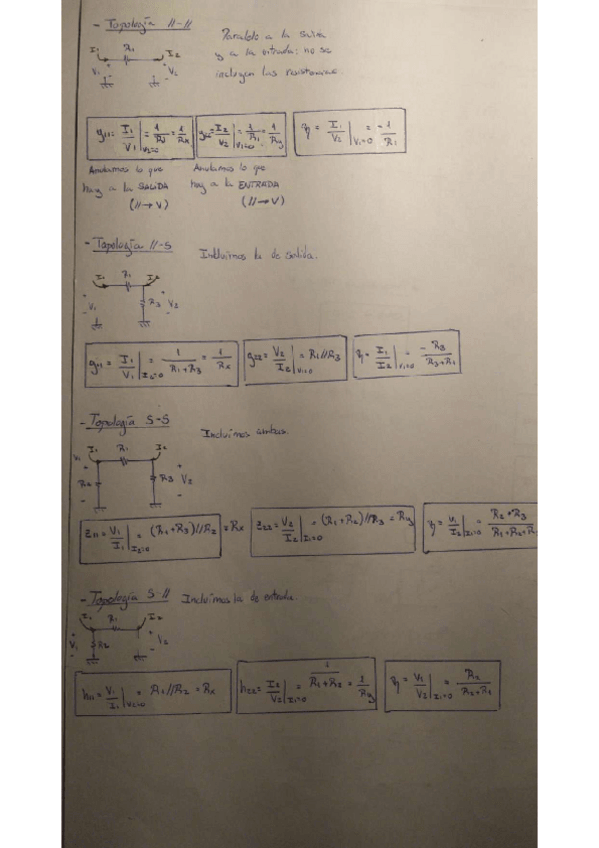 - Topología //-//
Paralelo a la salida
y a la entrada: no se
incluyen las resistencias.
I₁ R₁ I₂
+ V₁ - + V₂ -
g₁₁ = I₁/V₁ |V₂=0 = 1/R₁ = 1/Rx
g₂₂ = I₂/V₂ |V₁=0 = 1/R₁ = 1/Ry
η = I₁/V₂ |V₁=0 = -1/R₁
Anulamos lo que
hay a la SALIDA
(// → V)
Anulamos lo que
hay a la ENTRADA
(// → V)
- Topología //-S
Incluimos la de salida.
I₁ R₁ I₂
+ V₁ - R₃ + V₂ -
g₁₁ = I₁/V₁ |I₂=0 = 1/(R₁+R₃) = 1/Rx
g₂₂ = V₂/I₂ |V₁=0 = R₁//R₃
η = I₁/I₂ |V₁=0 = -R₃/(R₃+R₁)
- Topología S-S
Incluimos ambas.
I₁ R₁ I₂
V₁ + - R₂ R₃ + V₂ -
z₁₁ = V₁/I₁ |I₂=0 = (R₁+R₃)//R₂ = Rx
z₂₂ = V₂/I₂ |I₁=0 = (R₁+R₂)//R₃ = Ry
η = V₁/I₂ |I₁=0 = R₂·R₃/(R₁+R₂+R
- Topología S-//
Incluimos la de entrada.
I₁ R₁ I₂
+ V₁ - R₂ + V₂ -
h₁₁ = V₁/I₁ |V₂=0 = R₁//R₂ = Rx
h₂₂ = I₂/V₂ |I₁=0 = 1/(R₁+R₂) = 1/Ry
η = V₁/V₂ |I₁=0 = R₂/(R₂+R₁)